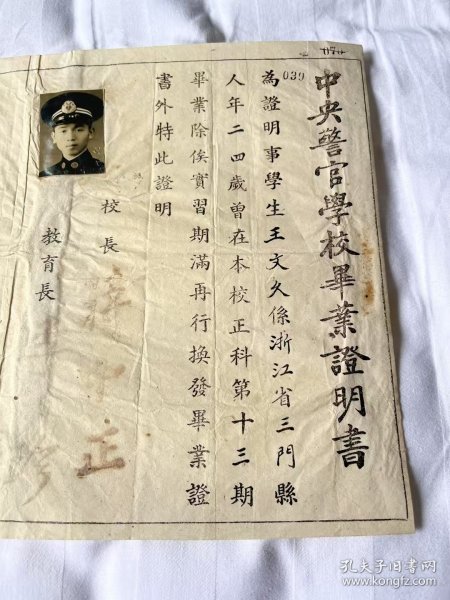 中央警官學校畢業證明書
039
為證明事學生王文夂係浙江省三門縣
人年二四歲曾在本校正科第十三期
畢業除俟實習期滿再行換發畢業證
書外特此證明
校長
正
教育長
孔夫子旧书网
www.kongfz.com